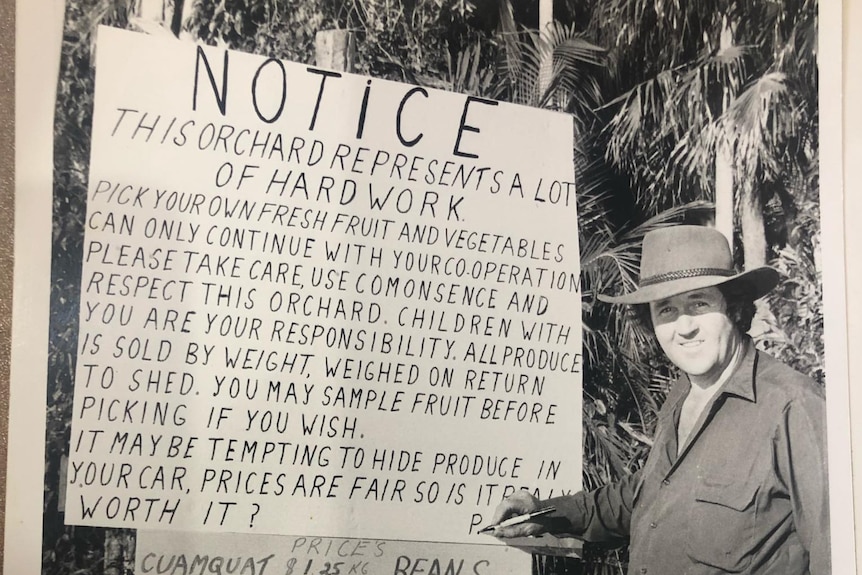 NOTICE
THIS ORCHARD REPRESENTS A LOT
OF HARD WORK.
PICK YOUR OWN FRESH FRUIT AND VEGETABLES
CAN ONLY CONTINUE WITH YOUR CO-OPERATION
PLEASE TAKE CARE, USE COMONSENCE AND
RESPECT THIS ORCHARD. CHILDREN WITH
YOU ARE YOUR RESPONSIBILITY. ALL PRODUCE
IS SOLD BY WEIGHT, WEIGHED ON RETURN
TO SHED. YOU MAY SAMPLE FRUIT BEFORE
PICKING IF YOU WISH.
IT MAY BE TEMPTING TO HIDE PRODUCE IN
YOUR CAR, PRICES ARE FAIR SO IS IT
WORTH IT?
PRICE'S
CUAMQUAT $1.25 KG BEANS